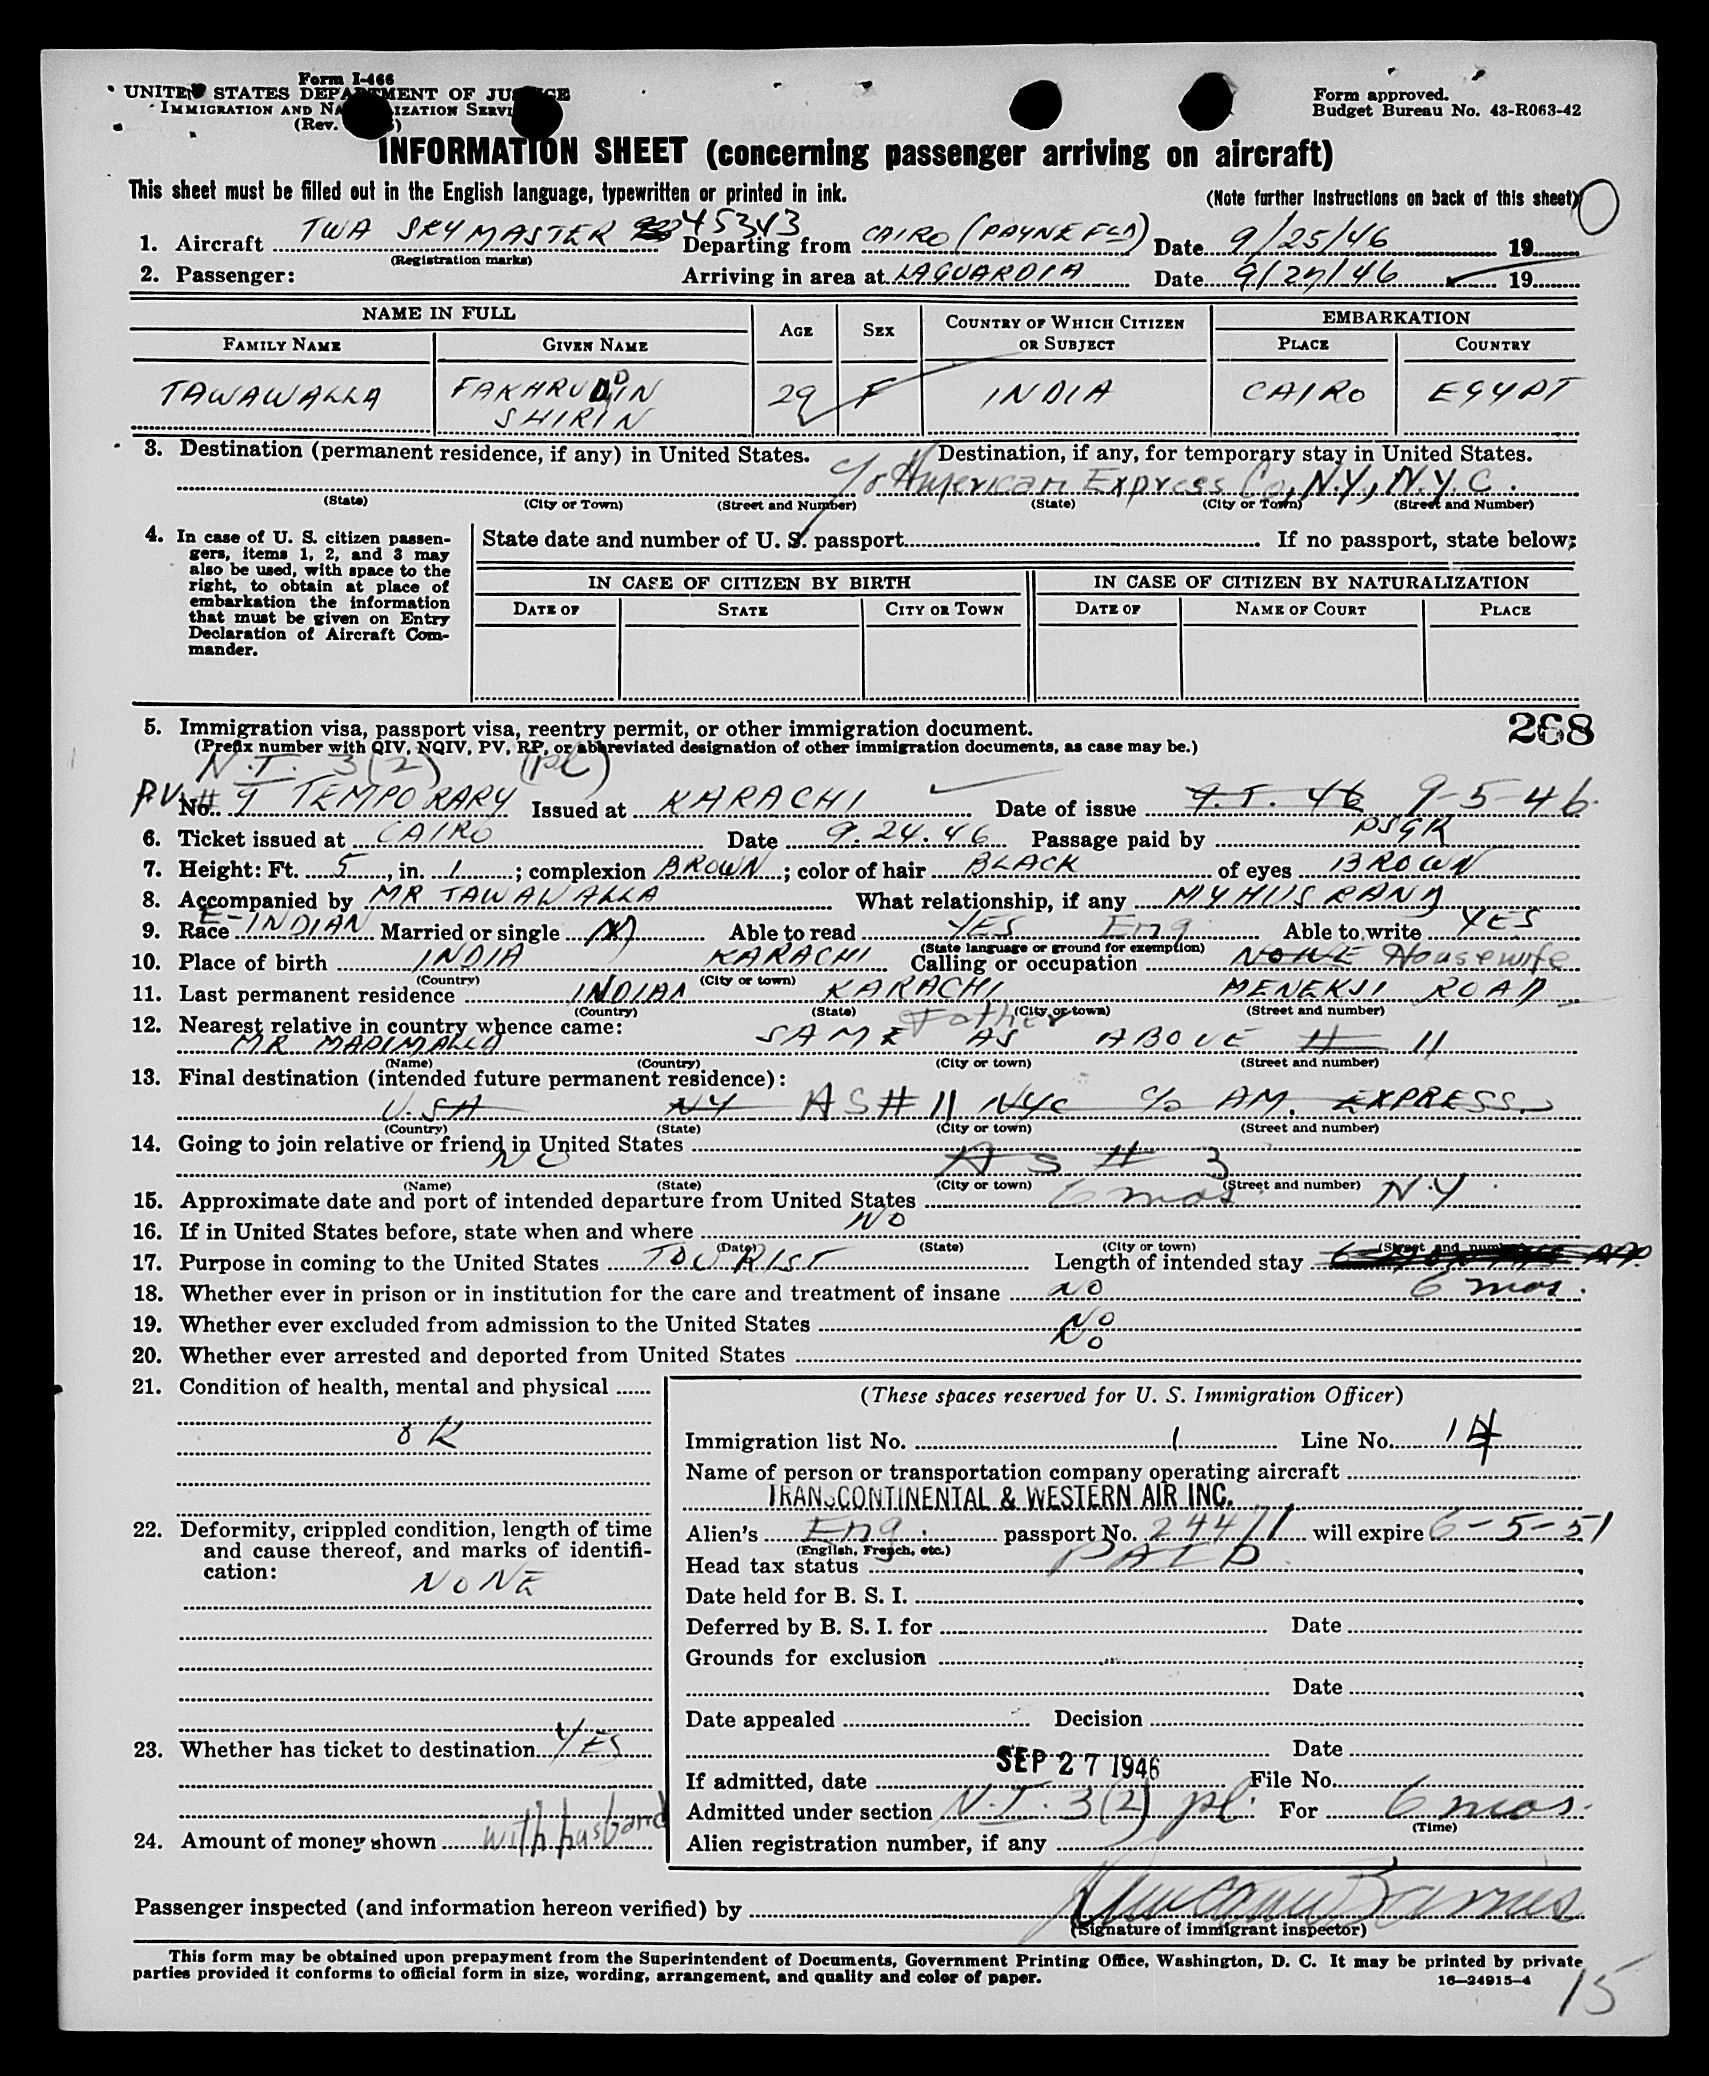 Form I-466
UNITED STATES DEPARTMENT OF JUSTICE
IMMIGRATION AND NATURALIZATION SERVICE
(Rev. )
Form approved.
Budget Bureau No. 43-R063-42
INFORMATION SHEET (concerning passenger arriving on aircraft)
This sheet must be filled out in the English language, typewritten or printed in ink.
(Note further instructions on back of this sheet)
1. Aircraft TWA SKYMASTER 45343 Departing from CAIRO (PAYNE FLD) Date 9/25/46 19
(Registration marks)
2. Passenger: Arriving in area at LAGUARDIA Date 9/27/46 19
NAME IN FULL AGE SEX COUNTRY OF WHICH CITIZEN OR SUBJECT EMBARKATION
FAMILY NAME GIVEN NAME PLACE COUNTRY
TAWAWALLA FAKHRUDDIN SHIRIN 29 F INDIA CAIRO EGYPT
3. Destination (permanent residence, if any) in United States. Destination, if any, for temporary stay in United States.
c/o American Express Co, N.Y., N.Y.C.
(State) (City or Town) (Street and Number) (State) (City or Town) (Street and Number)
4. In case of U. S. citizen passengers, items 1, 2, and 3 may also be used, with space to the right, to obtain at place of embarkation the information that must be given on Entry Declaration of Aircraft Commander.
State date and number of U. S. passport If no passport, state below:
IN CASE OF CITIZEN BY BIRTH IN CASE OF CITIZEN BY NATURALIZATION
DATE OF STATE CITY OR TOWN DATE OF NAME OF COURT PLACE
268
5. Immigration visa, passport visa, reentry permit, or other immigration document.
(Prefix number with QIV, NQIV, PV, RP, or abbreviated designation of other immigration documents, as case may be.)
N.I. 3(2) (pl)
P.V. No. # 9 TEMPORARY Issued at KARACHI Date of issue 9-5-46
6. Ticket issued at CAIRO Date 9.24.46 Passage paid by PSGR
7. Height: Ft. 5, in. 1; complexion BROWN; color of hair BLACK of eyes BROWN
8. Accompanied by MR TAWAWALLA What relationship, if any MY HUSBAND
9. Race E-INDIAN Married or single (M) Able to read YES Eng Able to write YES
(State language or ground for exemption)
10. Place of birth INDIA KARACHI Calling or occupation NONE Housewife
(Country) (City or town)
11. Last permanent residence INDIA KARACHI MENEKJI ROAD
(Country) (State) (City or town) (Street and number)
12. Nearest relative in country whence came: Father
MR MADIMALLA SAME AS ABOVE # 11
(Name) (Country) (City or town) (Street and number)
13. Final destination (intended future permanent residence):
U.SA NY AS # 11 NYC c/o AM. EXPRESS.
(Country) (State) (City or town) (Street and number)
14. Going to join relative or friend in United States
NO AS # 3
(Name) (State) (City or town) (Street and number)
15. Approximate date and port of intended departure from United States 6 mos. N.Y.
16. If in United States before, state when and where NO
(Date) (State) (City or town) (Street and number)
17. Purpose in coming to the United States TOURIST Length of intended stay
6 mos.
18. Whether ever in prison or in institution for the care and treatment of insane NO
19. Whether ever excluded from admission to the United States NO
20. Whether ever arrested and deported from United States No
21. Condition of health, mental and physical
OK
22. Deformity, crippled condition, length of time and cause thereof, and marks of identification:
NONE
23. Whether has ticket to destination YES
24. Amount of money shown with husband
(These spaces reserved for U. S. Immigration Officer)
Immigration list No. 1 Line No. 14
Name of person or transportation company operating aircraft
TRANSCONTINENTAL & WESTERN AIR INC.
Alien's Eng. passport No. 24471 will expire 6-5-51
(English, French, etc.)
Head tax status PAID
Date held for B. S. I.
Deferred by B. S. I. for Date
Grounds for exclusion
Date
Date appealed Decision
Date
If admitted, date SEP 27 1946 File No.
Admitted under section N.I. 3(2) pl. For 6 mos.
(Time)
Alien registration number, if any
Passenger inspected (and information hereon verified) by
(Signature of immigrant inspector)
This form may be obtained upon prepayment from the Superintendent of Documents, Government Printing Office, Washington, D. C. It may be printed by private
parties provided it conforms to official form in size, wording, arrangement, and quality and color of paper.
16—24915-4
15